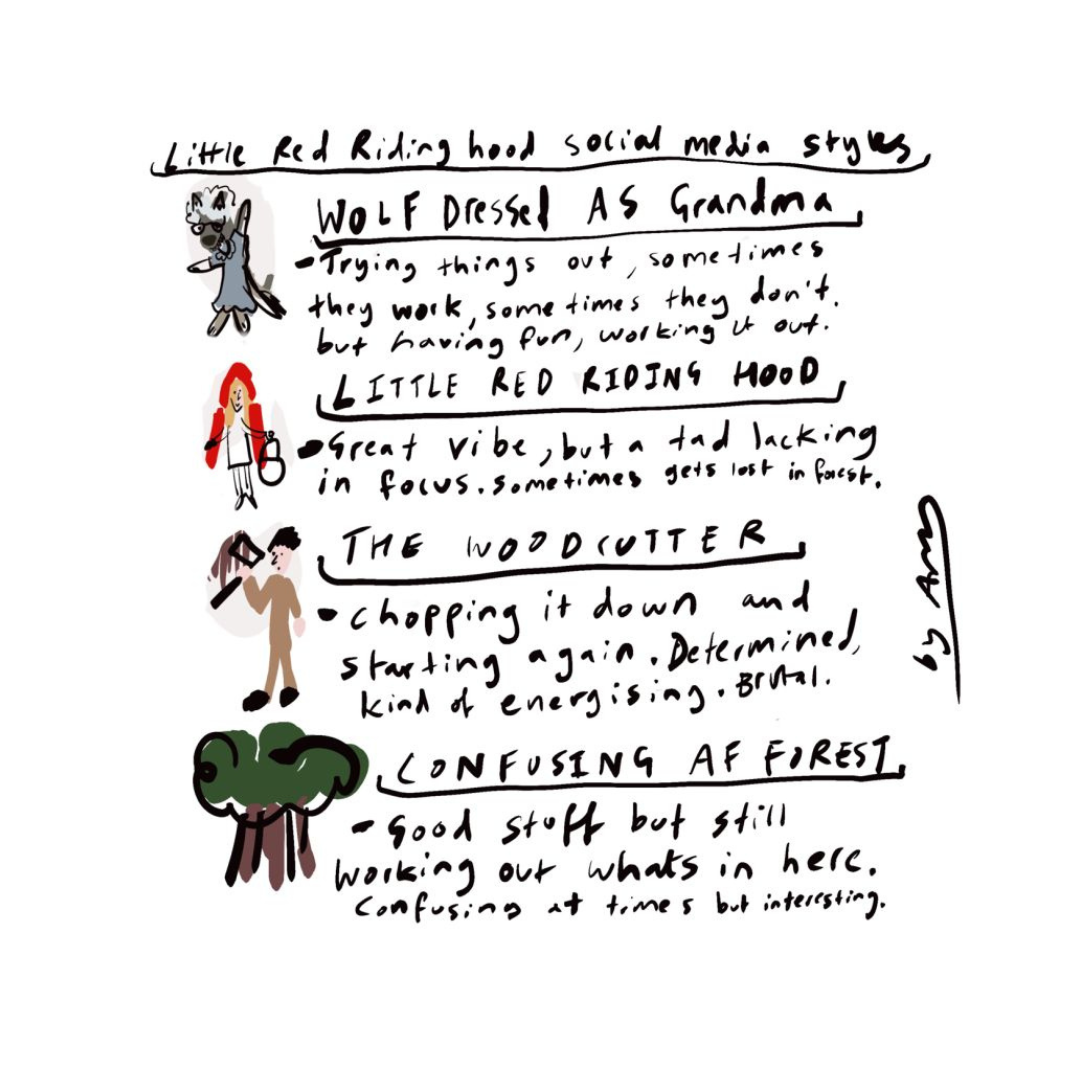 Little Red Riding hood social media styles
WOLF Dressed AS Grandma
- Trying things out, sometimes
they work, sometimes they don't.
but having fun, working it out.
LITTLE RED RIDING HOOD
- Great vibe, but a tad lacking
in focus. sometimes gets lost in forest.
THE WOODCUTTER
- chopping it down and
starting again. Determined,
kind of energising. Brutal.
CONFUSING AF FOREST
- Good stuff but still
working out whats in here.
Confusing at times but interesting.
by